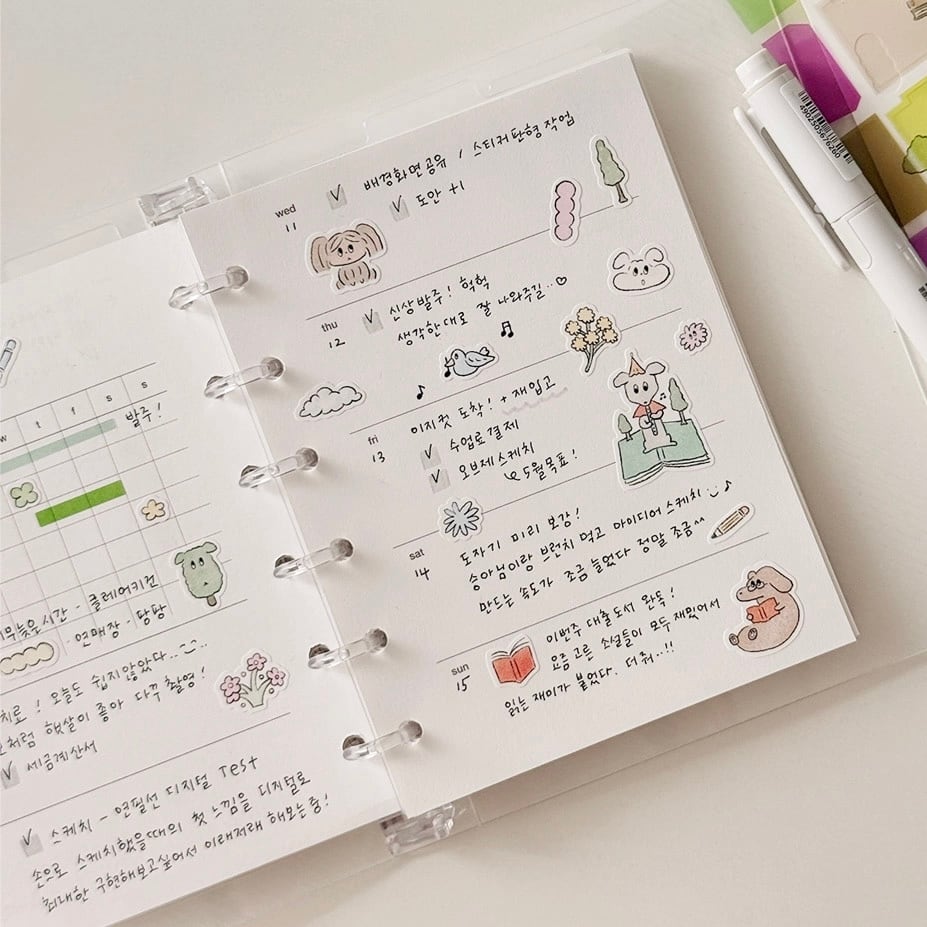 w t f s s
발주!
늦은시간 - 클레어키건
- 연매장 - 당팡
! 오늘도 쉽지않았다..
처럼 햇살이 좋아 다꾸 촬영!
세금계산서
스케치 - 연필선 디지털 Test
손으로 스케치했을때의 첫 느낌을 디지털로
최대한 구현해보고싶어서 이래저래 해보는중!
wed
11
배경화면공유 / 스티커판형작업
도안 +1
thu
12
신상발주! 헉헉
생각한대로 잘 나와주길..♡
fri
13
이지컷 도착! + 재입고
수업료결제
오브제스케치
5월목표!
sat
14
도자기 미리 보강!
송아님이랑 브런치 먹고 아이디어스케치
만드는 속도가 조금 늘었다 정말 조금^^
sun
15
이번주 대출도서 완독!
요즘 고른 소설들이 모두 재밌어서
읽는 재미가 붙었다. 더 줘..!!
4902505676260